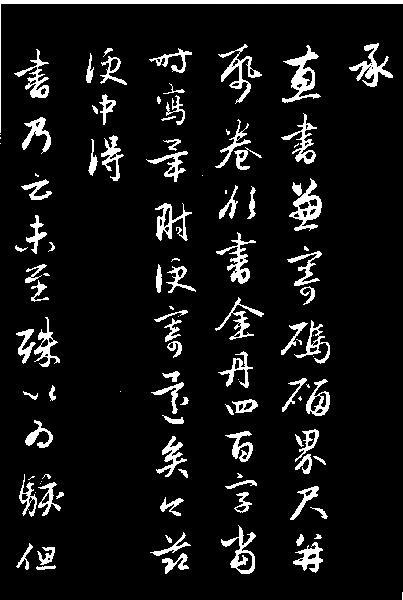 承
惠書兼寄碼碯界尺并
紙卷欲書金丹四百字當
時寫畢附便寄還矣今茲
便中得
書乃云未至殊以為駭但